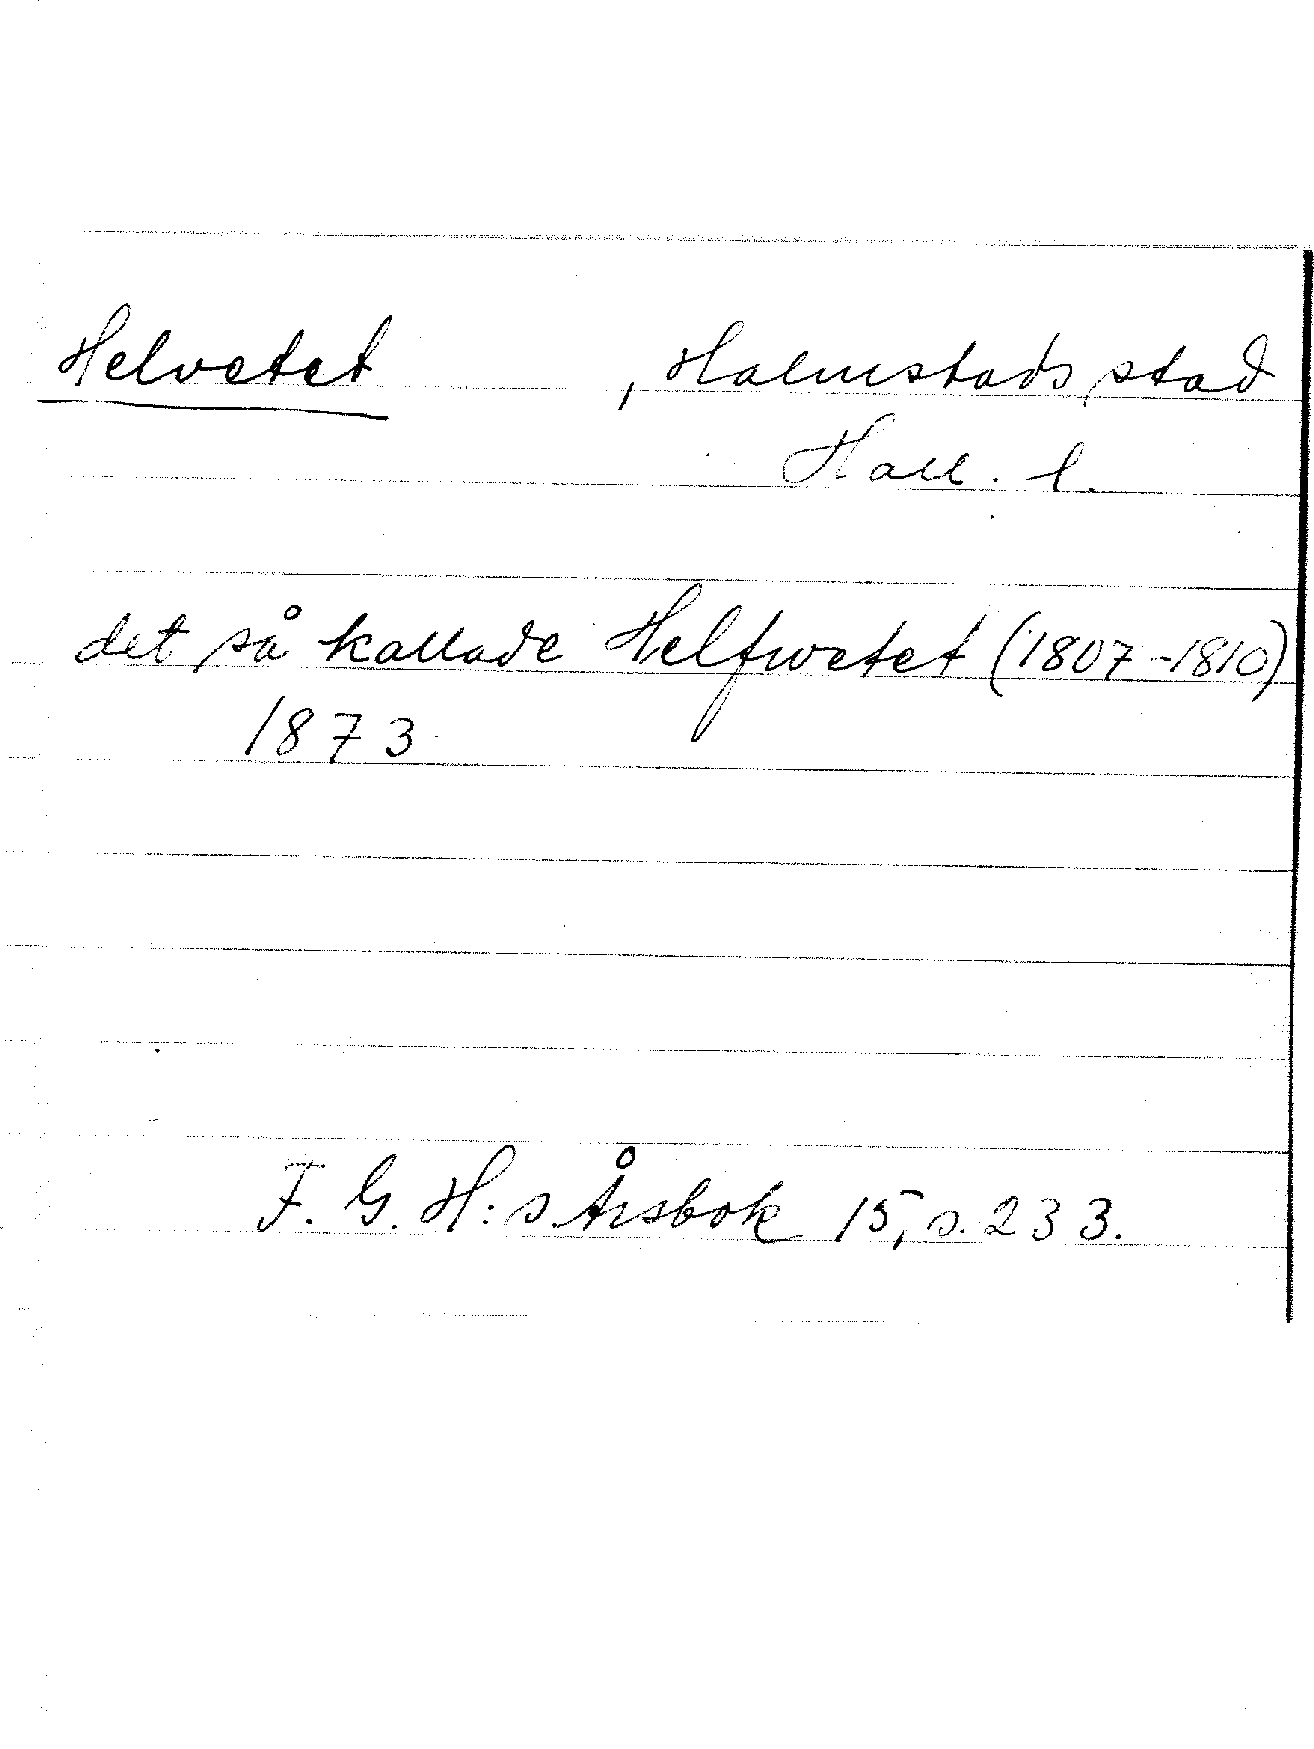 Helvetet , Halmstads stad
Hall. l.
det så kallade Helfwetet (1807-1810)
1873
F. G. H:s Årsbok 15, s. 233.